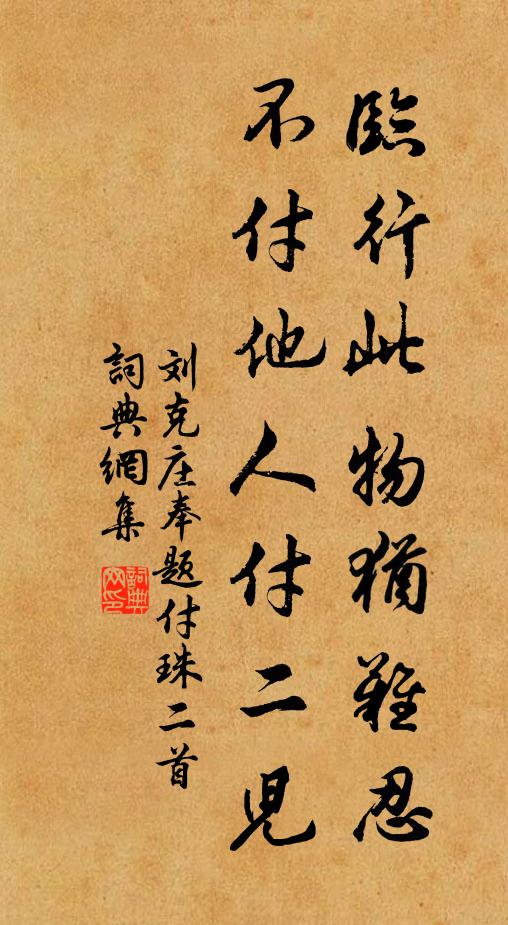 臨行此物猶難忍
不付他人付二児
刘克庄奉题付珠二首
詞典網集
詞典网印